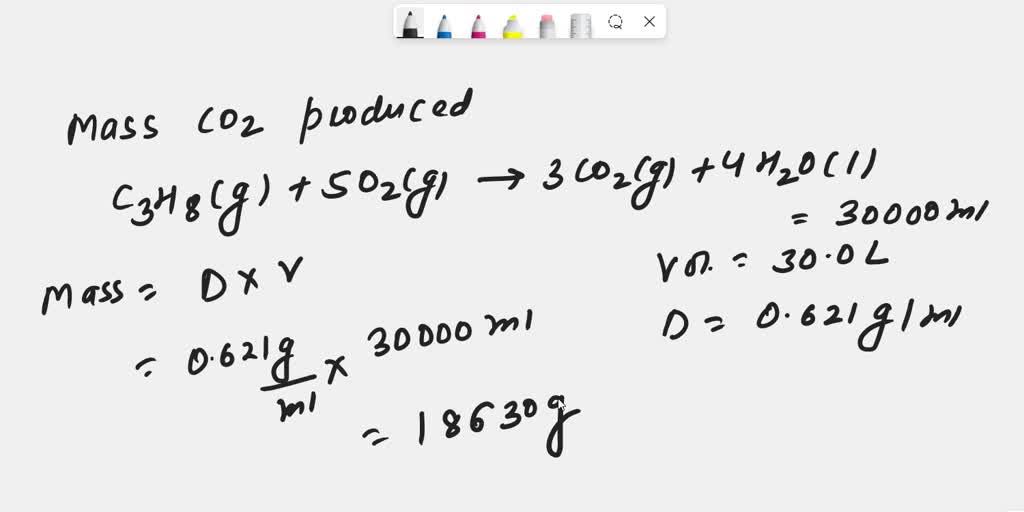 Mass CO2 produced
C3H8(g) + 5O2(g) → 3CO2(g) + 4H2O(l)
= 30000 ml
Vol. = 30.0 L
Mass = D x V
D = 0.621 g/ml
= 0.621 g/ml x 30000 ml
= 18630 g